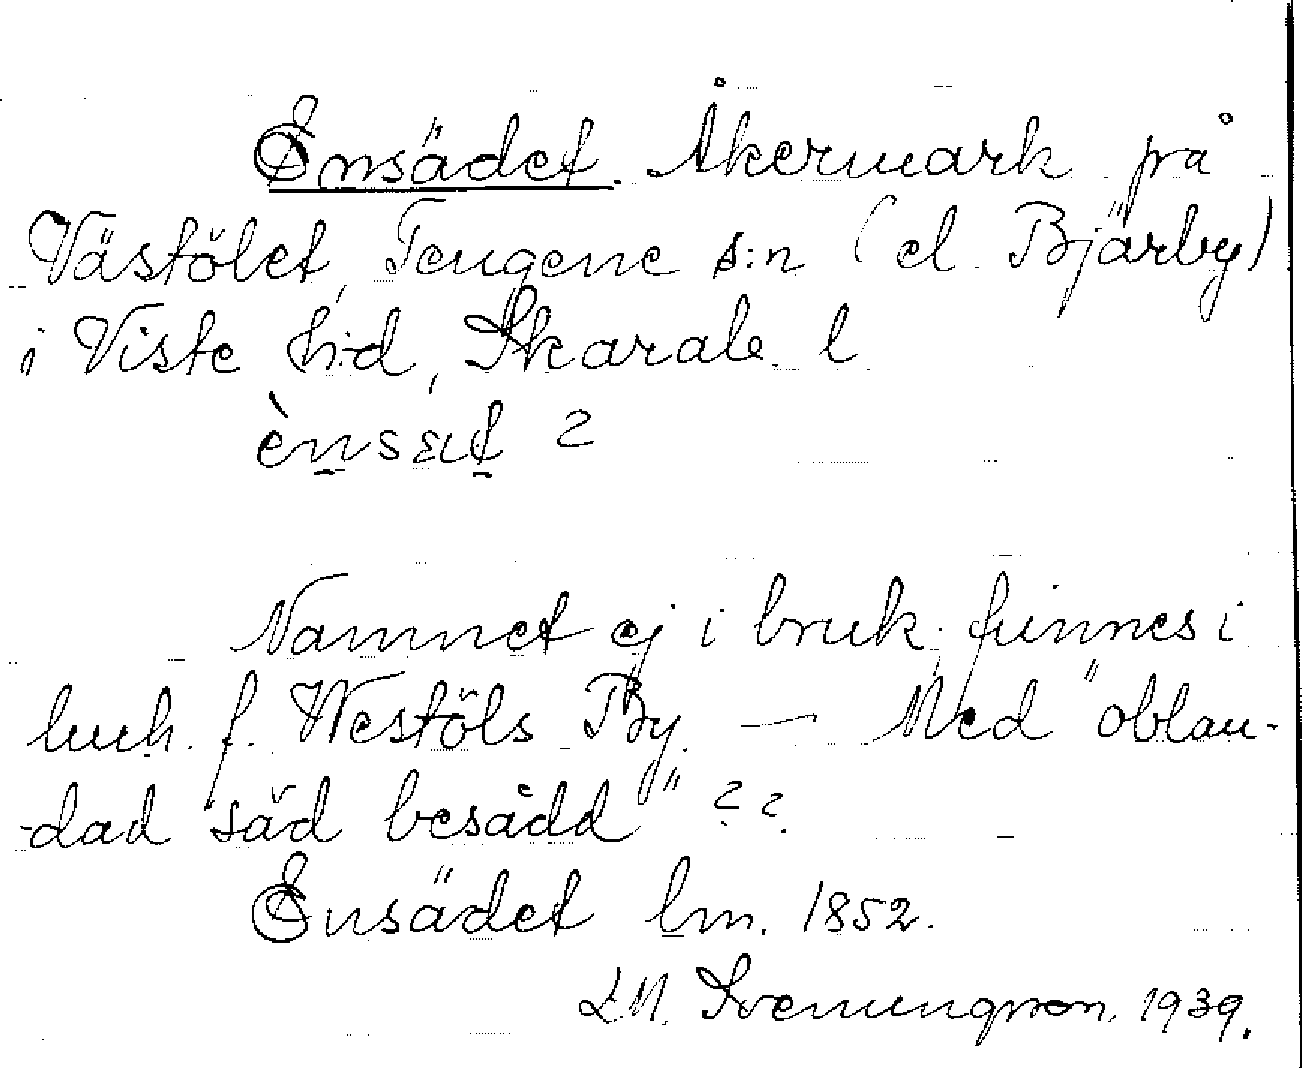 Ensädet. Åkermark på
Västölet, Tengene s:n (el. Bjärby)
i Viste h:d, Skarab. l
ènsæt 2
Namnet ej i bruk; finnes i
lmh. f. Westöls By. — Med "oblan-
-dad säd besådd" ??
Ensädet lm. 1852.
LM. Svenungsson, 1939.